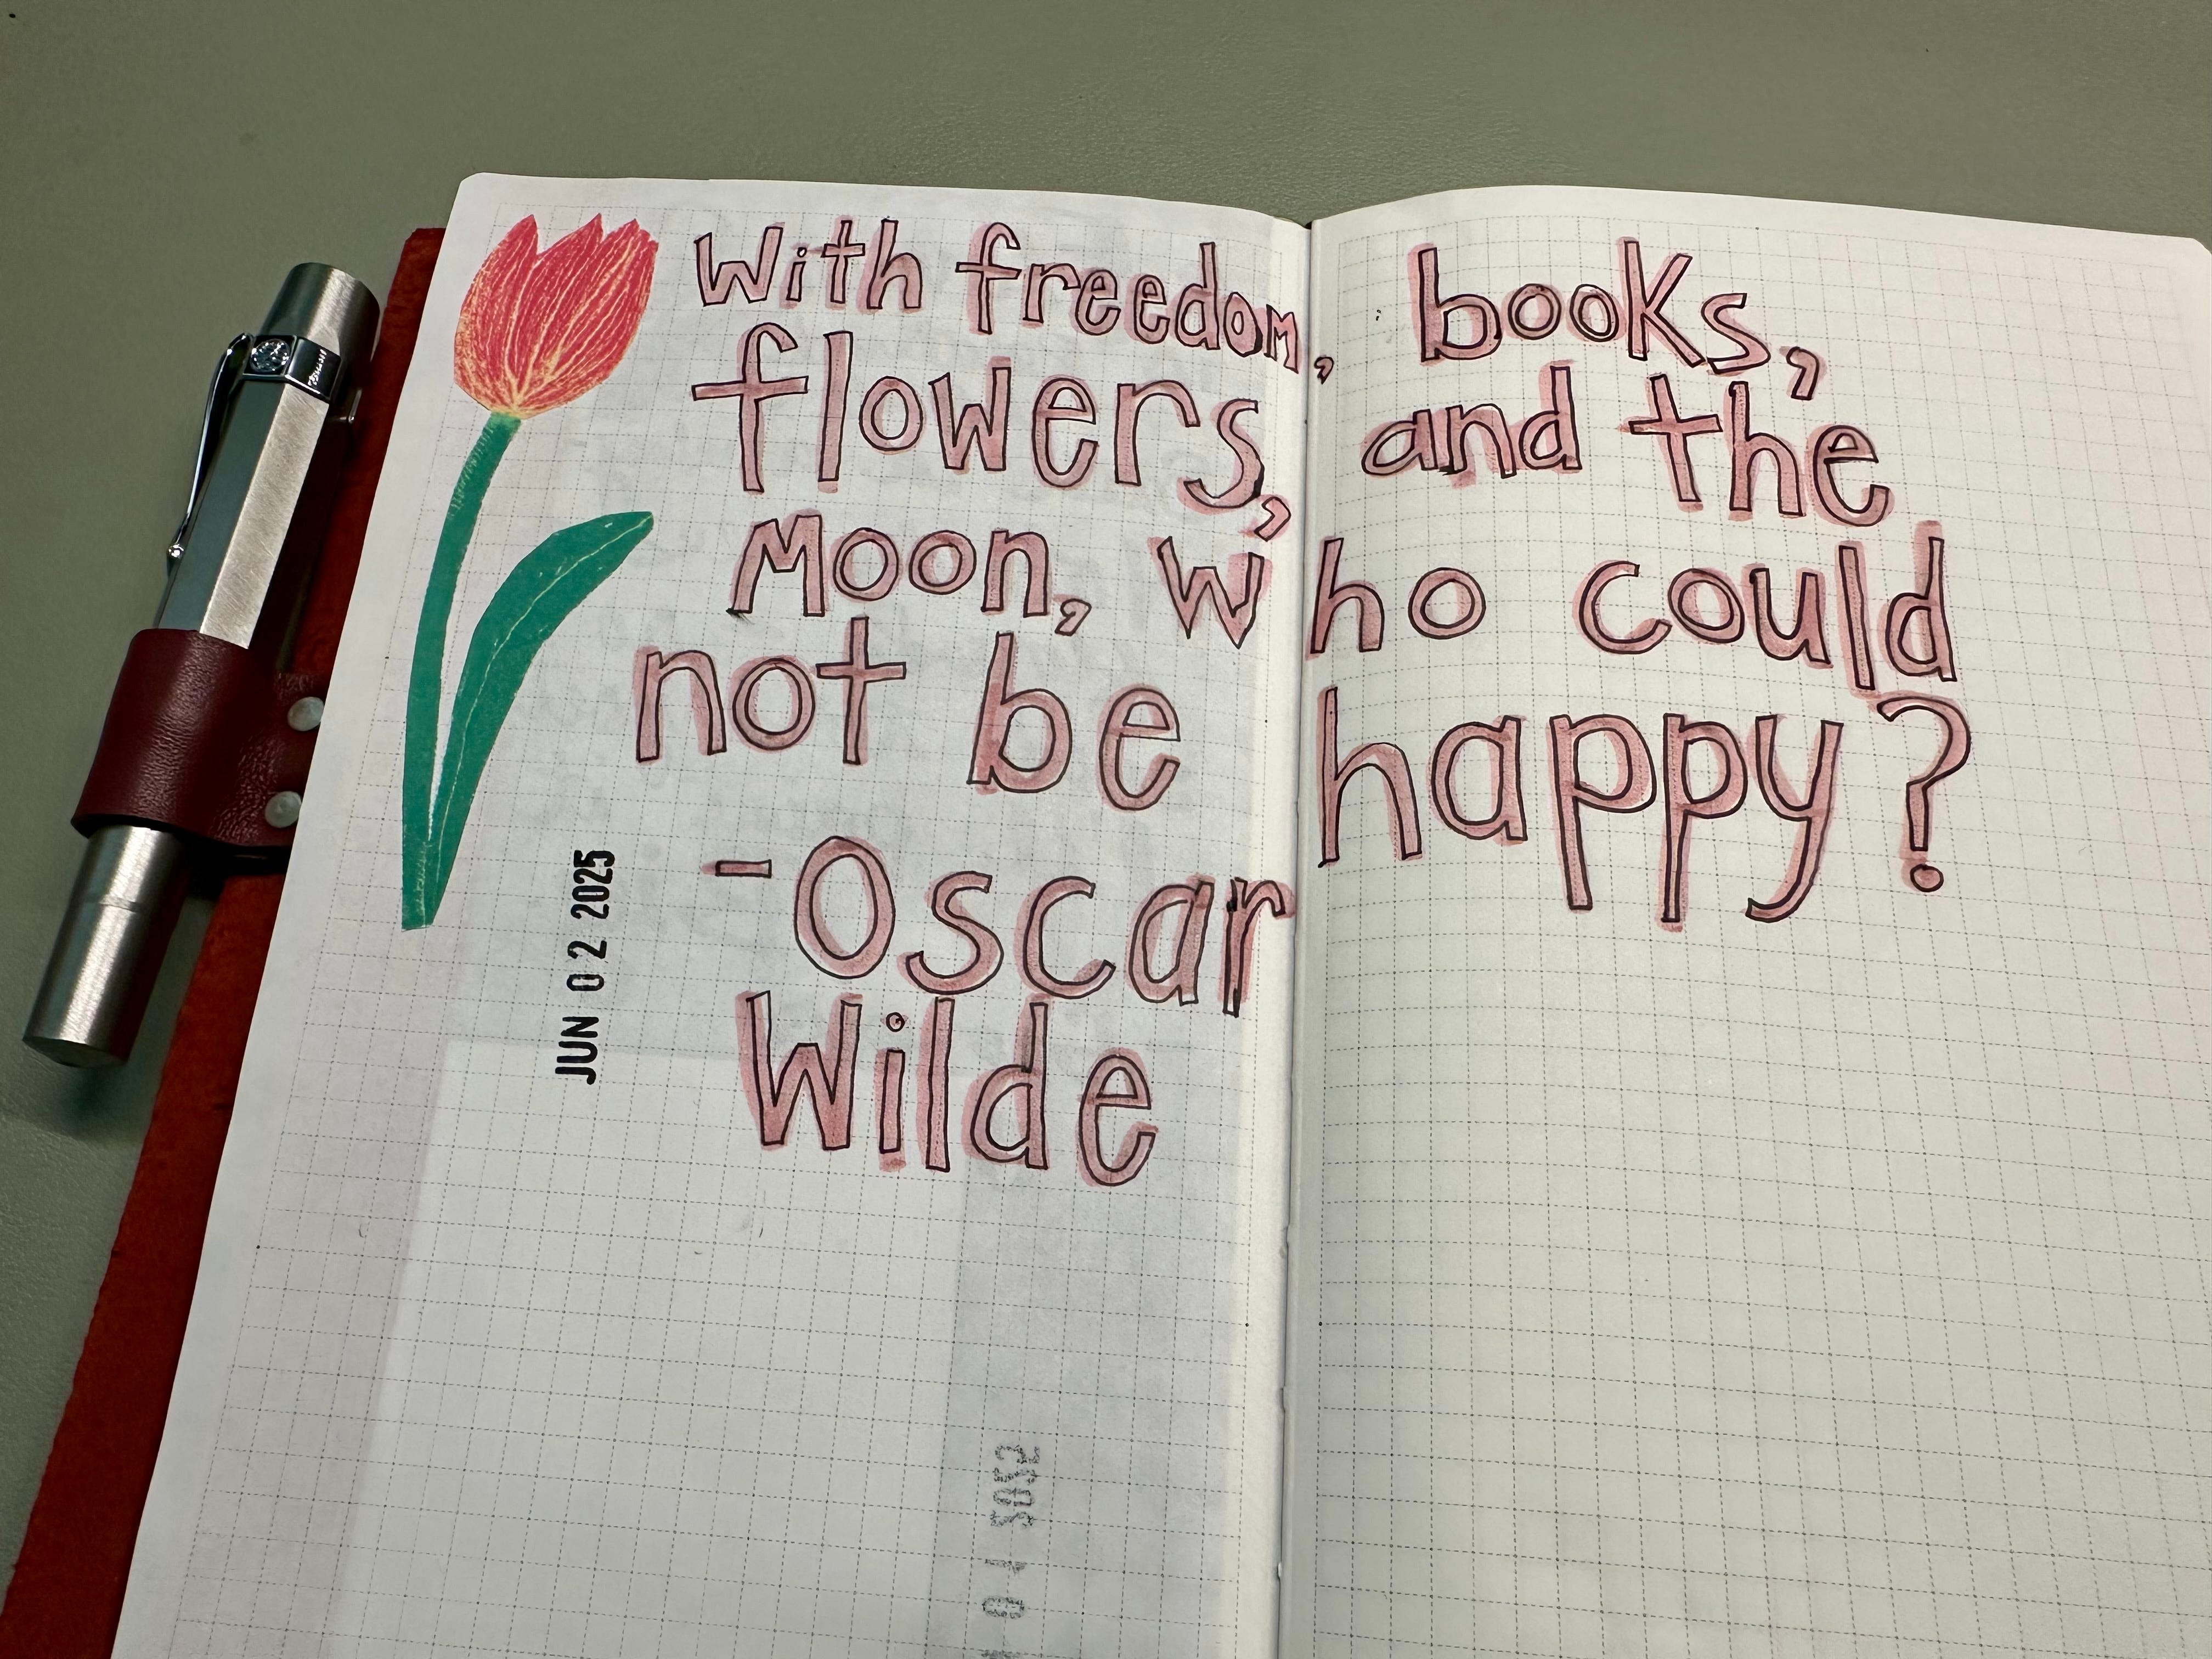 With freedom, books,
flowers, and the
Moon, who could
not be happy?
- Oscar
Wilde
JUN 02 2025